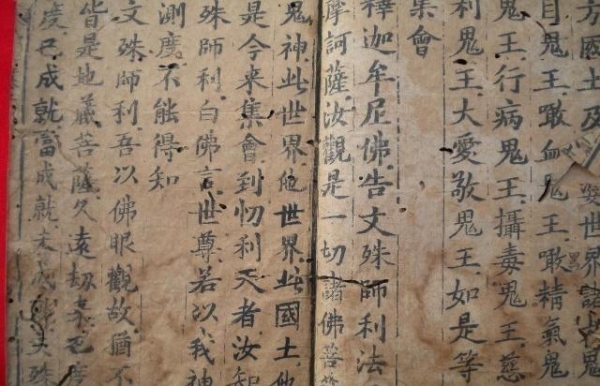 方國土及娑婆世界諸惡鬼
目鬼王噉血鬼王噉精氣鬼
鬼王行病鬼王攝毒鬼王慈
利鬼王大愛敬鬼王如是等
集會
釋迦牟尼佛告文殊師利法
摩訶薩汝觀是一切諸佛菩
鬼神此世界他世界此國土他
是今来集會到忉利天者汝知
殊師利白佛言世尊若以我神
測度不能得知
文殊師利吾以佛眼觀故猶不
皆是地藏菩薩久遠劫来已度
度已成就當成就未成就文殊